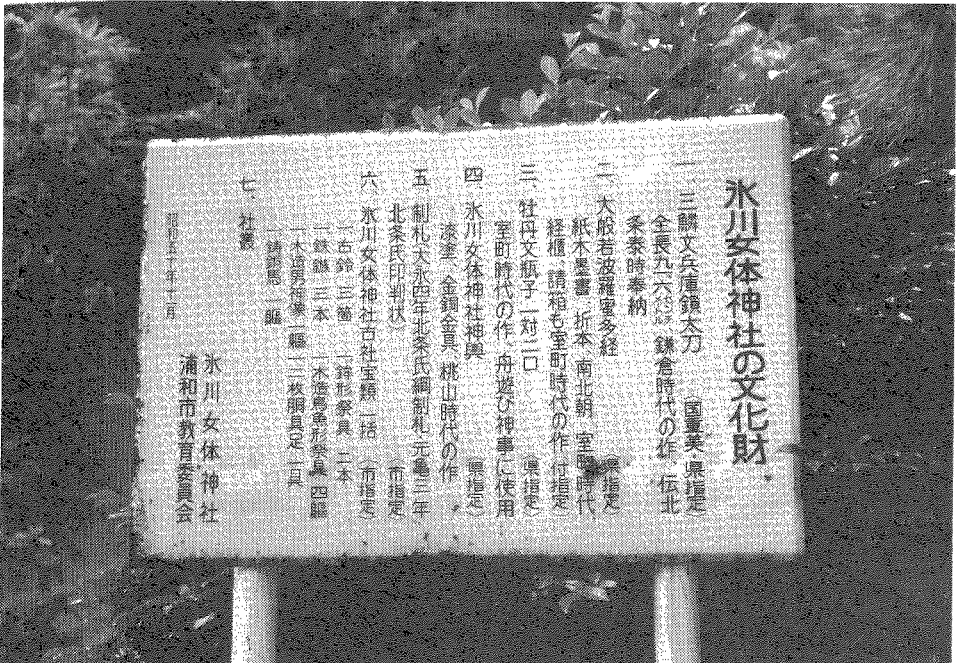 氷川女体神社の文化財
一、三鱗文兵庫鎖太刀 (国重美・県指定)
全長九六センチメートル 鎌倉時代の作 伝北
条泰時奉納
二、大般若波羅蜜多経 (県指定)
紙本墨書 折本 南北朝 室町時代
経櫃、請箱も室町時代の作 付指定
三、牡丹文瓶子 一対二口 (県指定)
室町時代の作、舟遊び神事に使用
四、氷川女体神社神輿 (県指定)
漆塗 金銅金具 桃山時代の作
五、制札大永四年北条氏綱制札・元亀三年
北条氏印判状) (市指定)
六、氷川女体神社古社宝類 一括 (市指定)
一古鈴 三箇 一鉾形祭具 二本
一鉄鏃 三本 一木造鳥形祭具 四軀
一木造男神像 二軀 一二枚胴具足 一具
一鋳銅馬 一軀
七、社叢
昭和五十年十二月
氷川女体神社
浦和市教育委員会